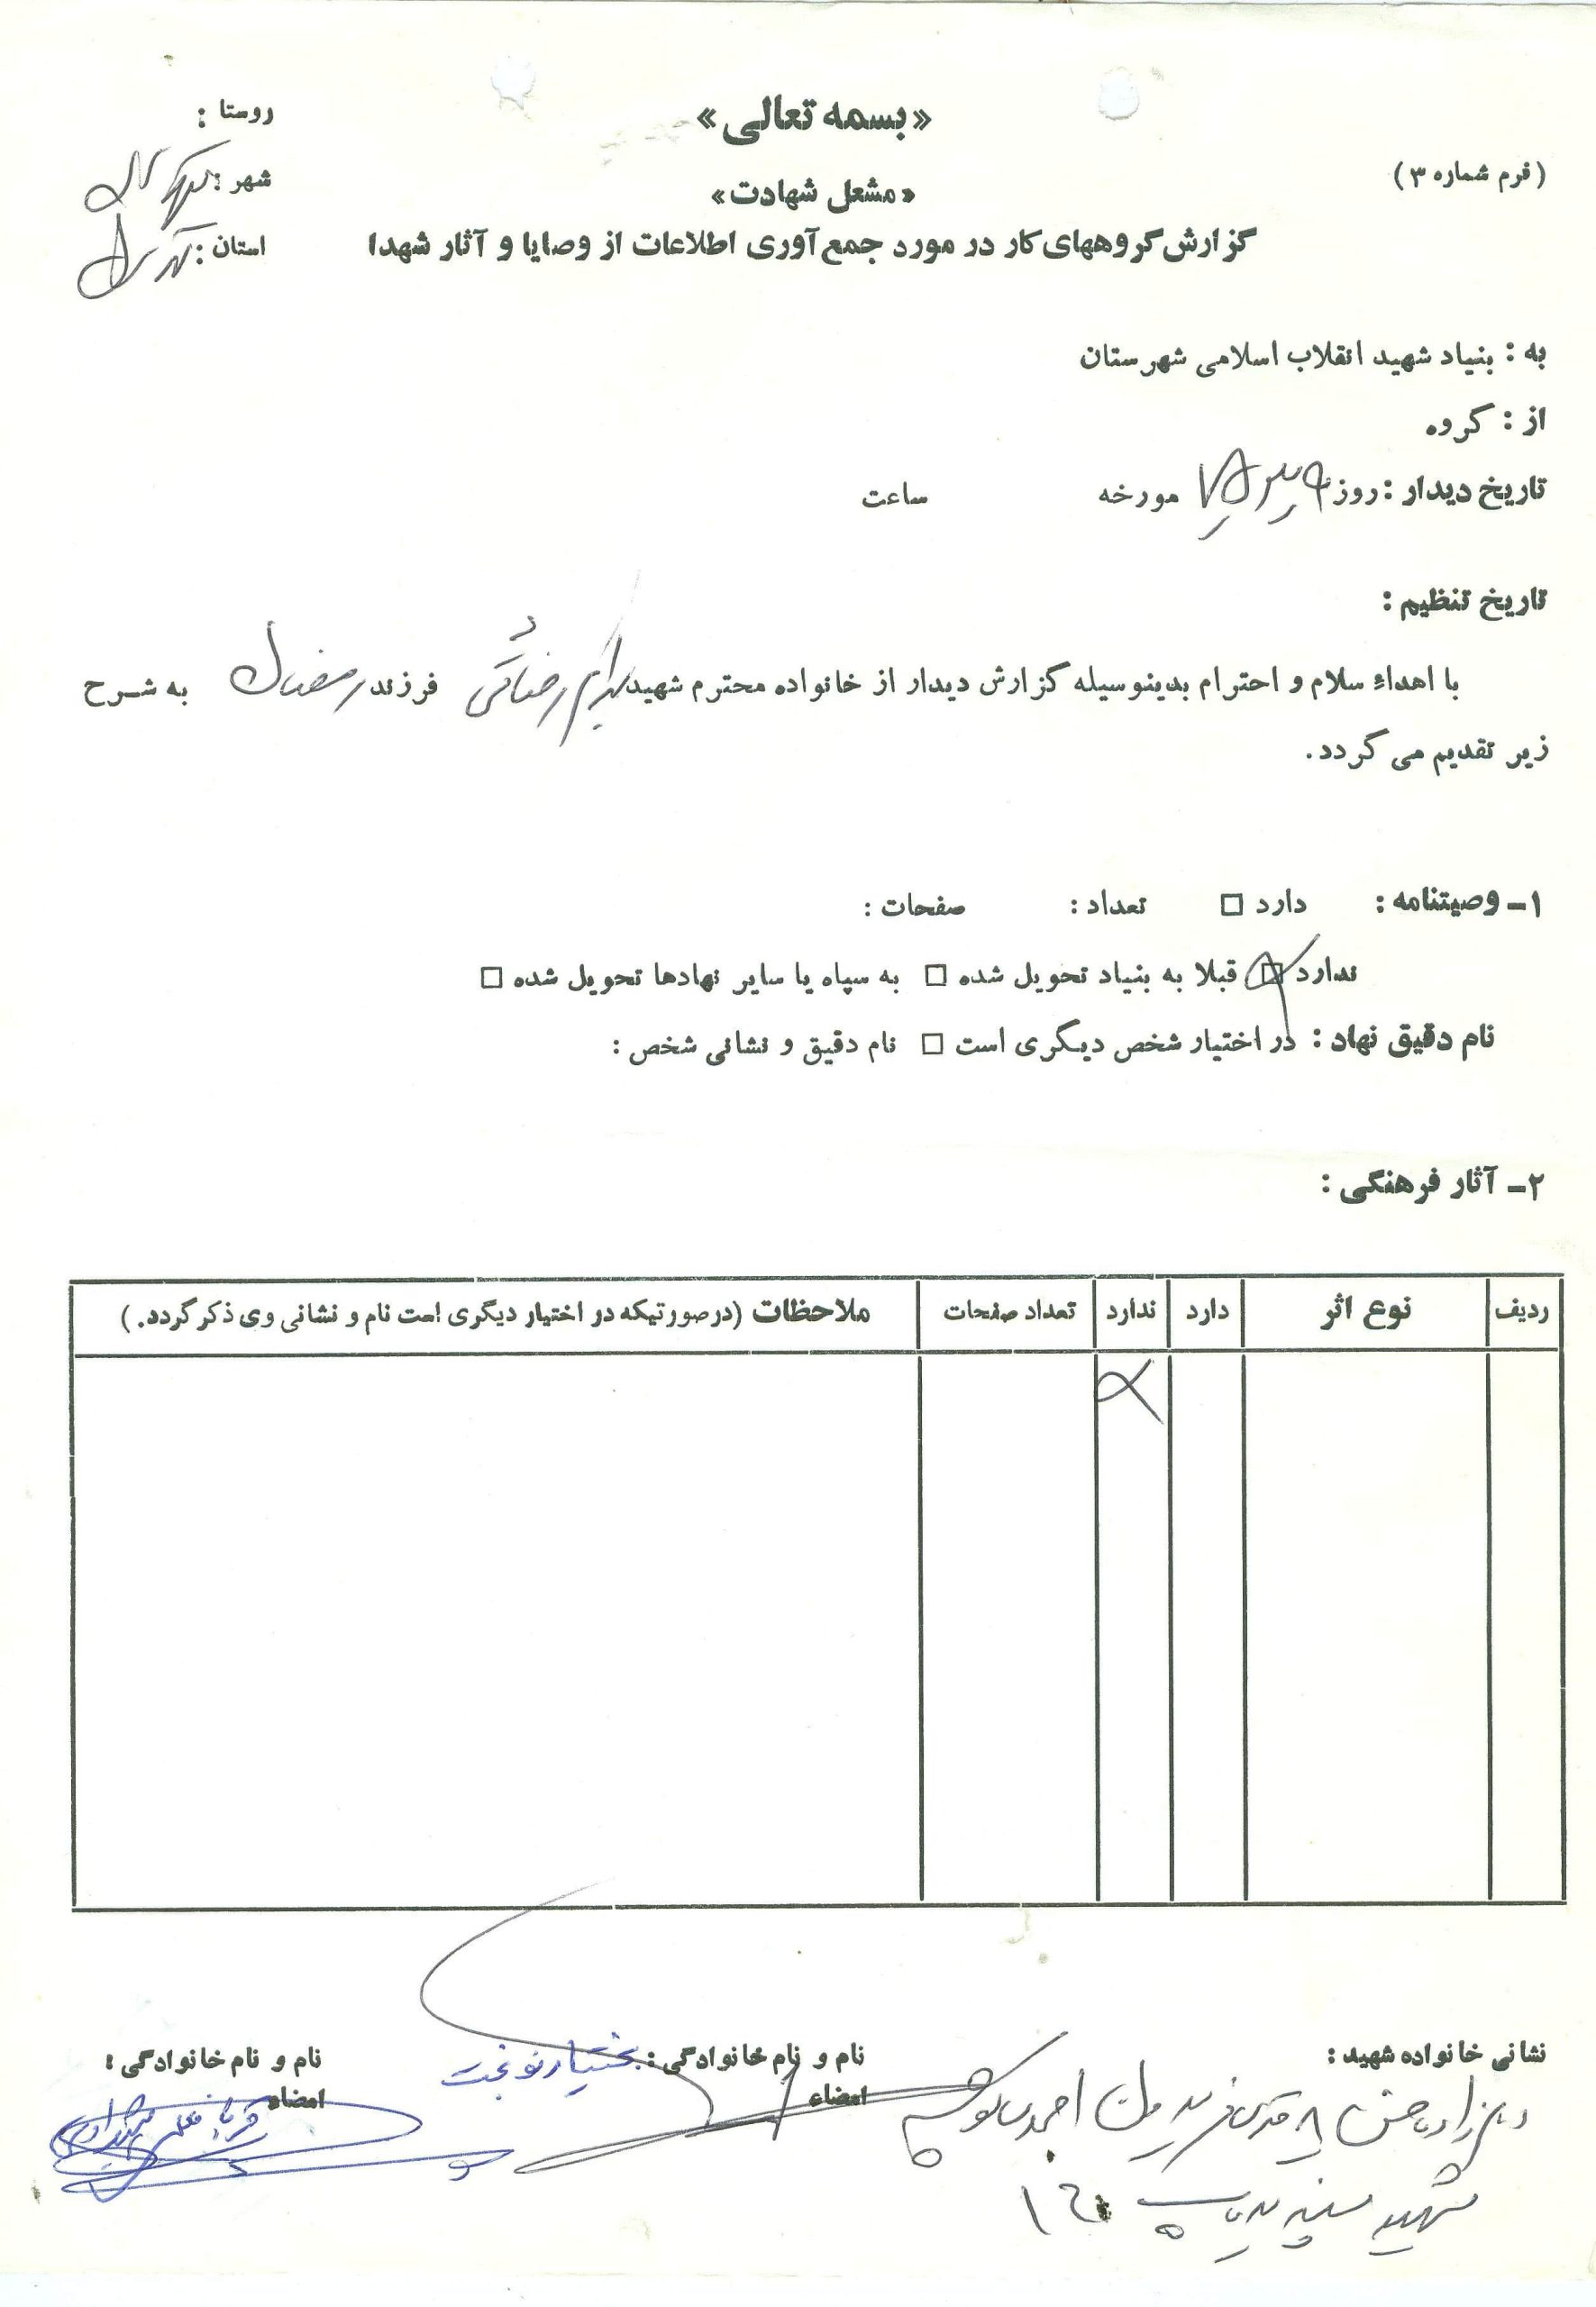 «بسمه تعالی»
(فرم شماره ۳)
«مشعل شهادت»
گزارش گروههای کار در مورد جمع‌آوری اطلاعات از وصایا و آثار شهدا
روستا :
شهر :
استان : تهران
به : بنیاد شهید انقلاب اسلامی شهرستان
از : گروه
تاریخ دیدار : روز ۷۸/۳/۹ مورخه ساعت
تاریخ تنظیم :
با اهداء سلام و احترام بدینوسیله گزارش دیدار از خانواده محترم شهید فرزند رمضان به شرح
زیر تقدیم می گردد.
۱- وصیتنامه : دارد □ تعداد : صفحات :
ندارد □ قبلا به بنیاد تحویل شده □ به سپاه یا سایر نهادها تحویل شده □
نام دقیق نهاد : در اختیار شخص دیگری است □ نام دقیق و نشانی شخص :
۲- آثار فرهنگی :
ردیف نوع اثر دارد ندارد تعداد صفحات ملاحظات (درصورتیکه در اختیار دیگری است نام و نشانی وی ذکر گردد.)
نشانی خانواده شهید :
شهید ۱۶
نام و نام خانوادگی : بختیار نوبخت
امضاء
نام و نام خانوادگی :
امضاء